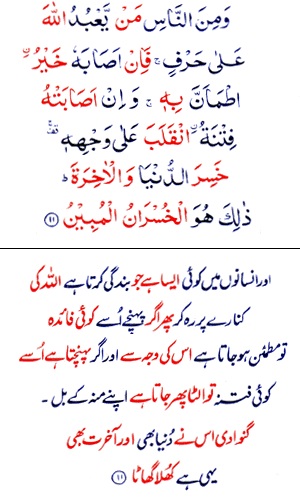 وَمِنَ النَّاسِ مَنْ يَّعْبُدُ اللّٰهَ
عَلٰى حَرْفٍ ۚ فَاِنْ اَصَابَهٗ خَيْرُ ۨ
اطْمَاَنَّ بِهٖ ۚ وَاِنْ اَصَابَتْهُ
فِتْنَةُ ۨ انْقَلَبَ عَلٰى وَجْهِهٖ ۚ
خَسِرَ الدُّنْيَا وَالْاٰخِرَةَ ؕ
ذٰلِكَ هُوَ الْخُسْرَانُ الْمُبِيْنُ ۝۱۱
اور انسانوں میں کوئی ایسا ہے جو بندگی کرتا ہے اللہ کی
کنارے پر رہ کر پھر اگر پہنچے اُسے کوئی فائدہ
تو مطمئن ہو جاتا ہے اس کی وجہ سے اور اگر پہنچتا ہے اُسے
کوئی فتنہ تو الٹا پھر جاتا ہے اپنے منہ کے بل ۔
گنوا دی اس نے دُنیا بھی اور آخرت بھی
یہی ہے کھُلا گھاٹا ۝۱۱